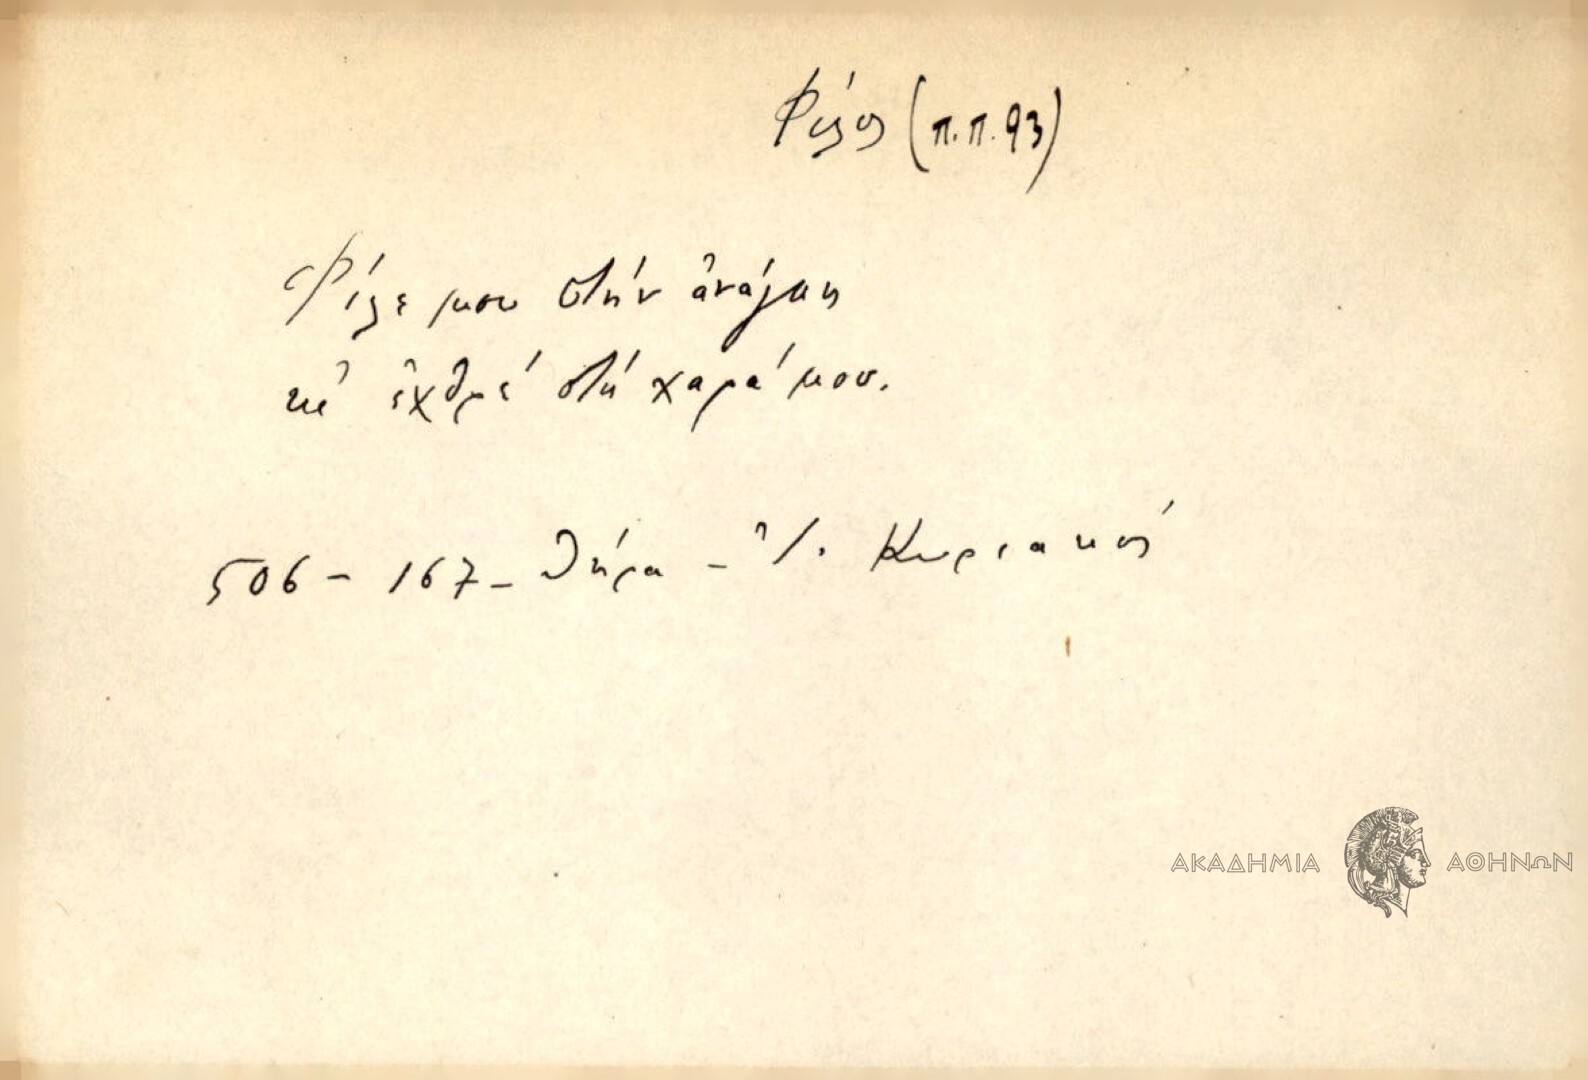 Φίλος (π.π. 93)
Φίλε μου στήν ἀνάγκη
κι' ἐχθρέ στή χαρά μου.
506 - 167 - Θήρα - Ἰ. Κυριακός
ΑΚΑΔΗΜΙΑ ΑΘΗΝΩΝ